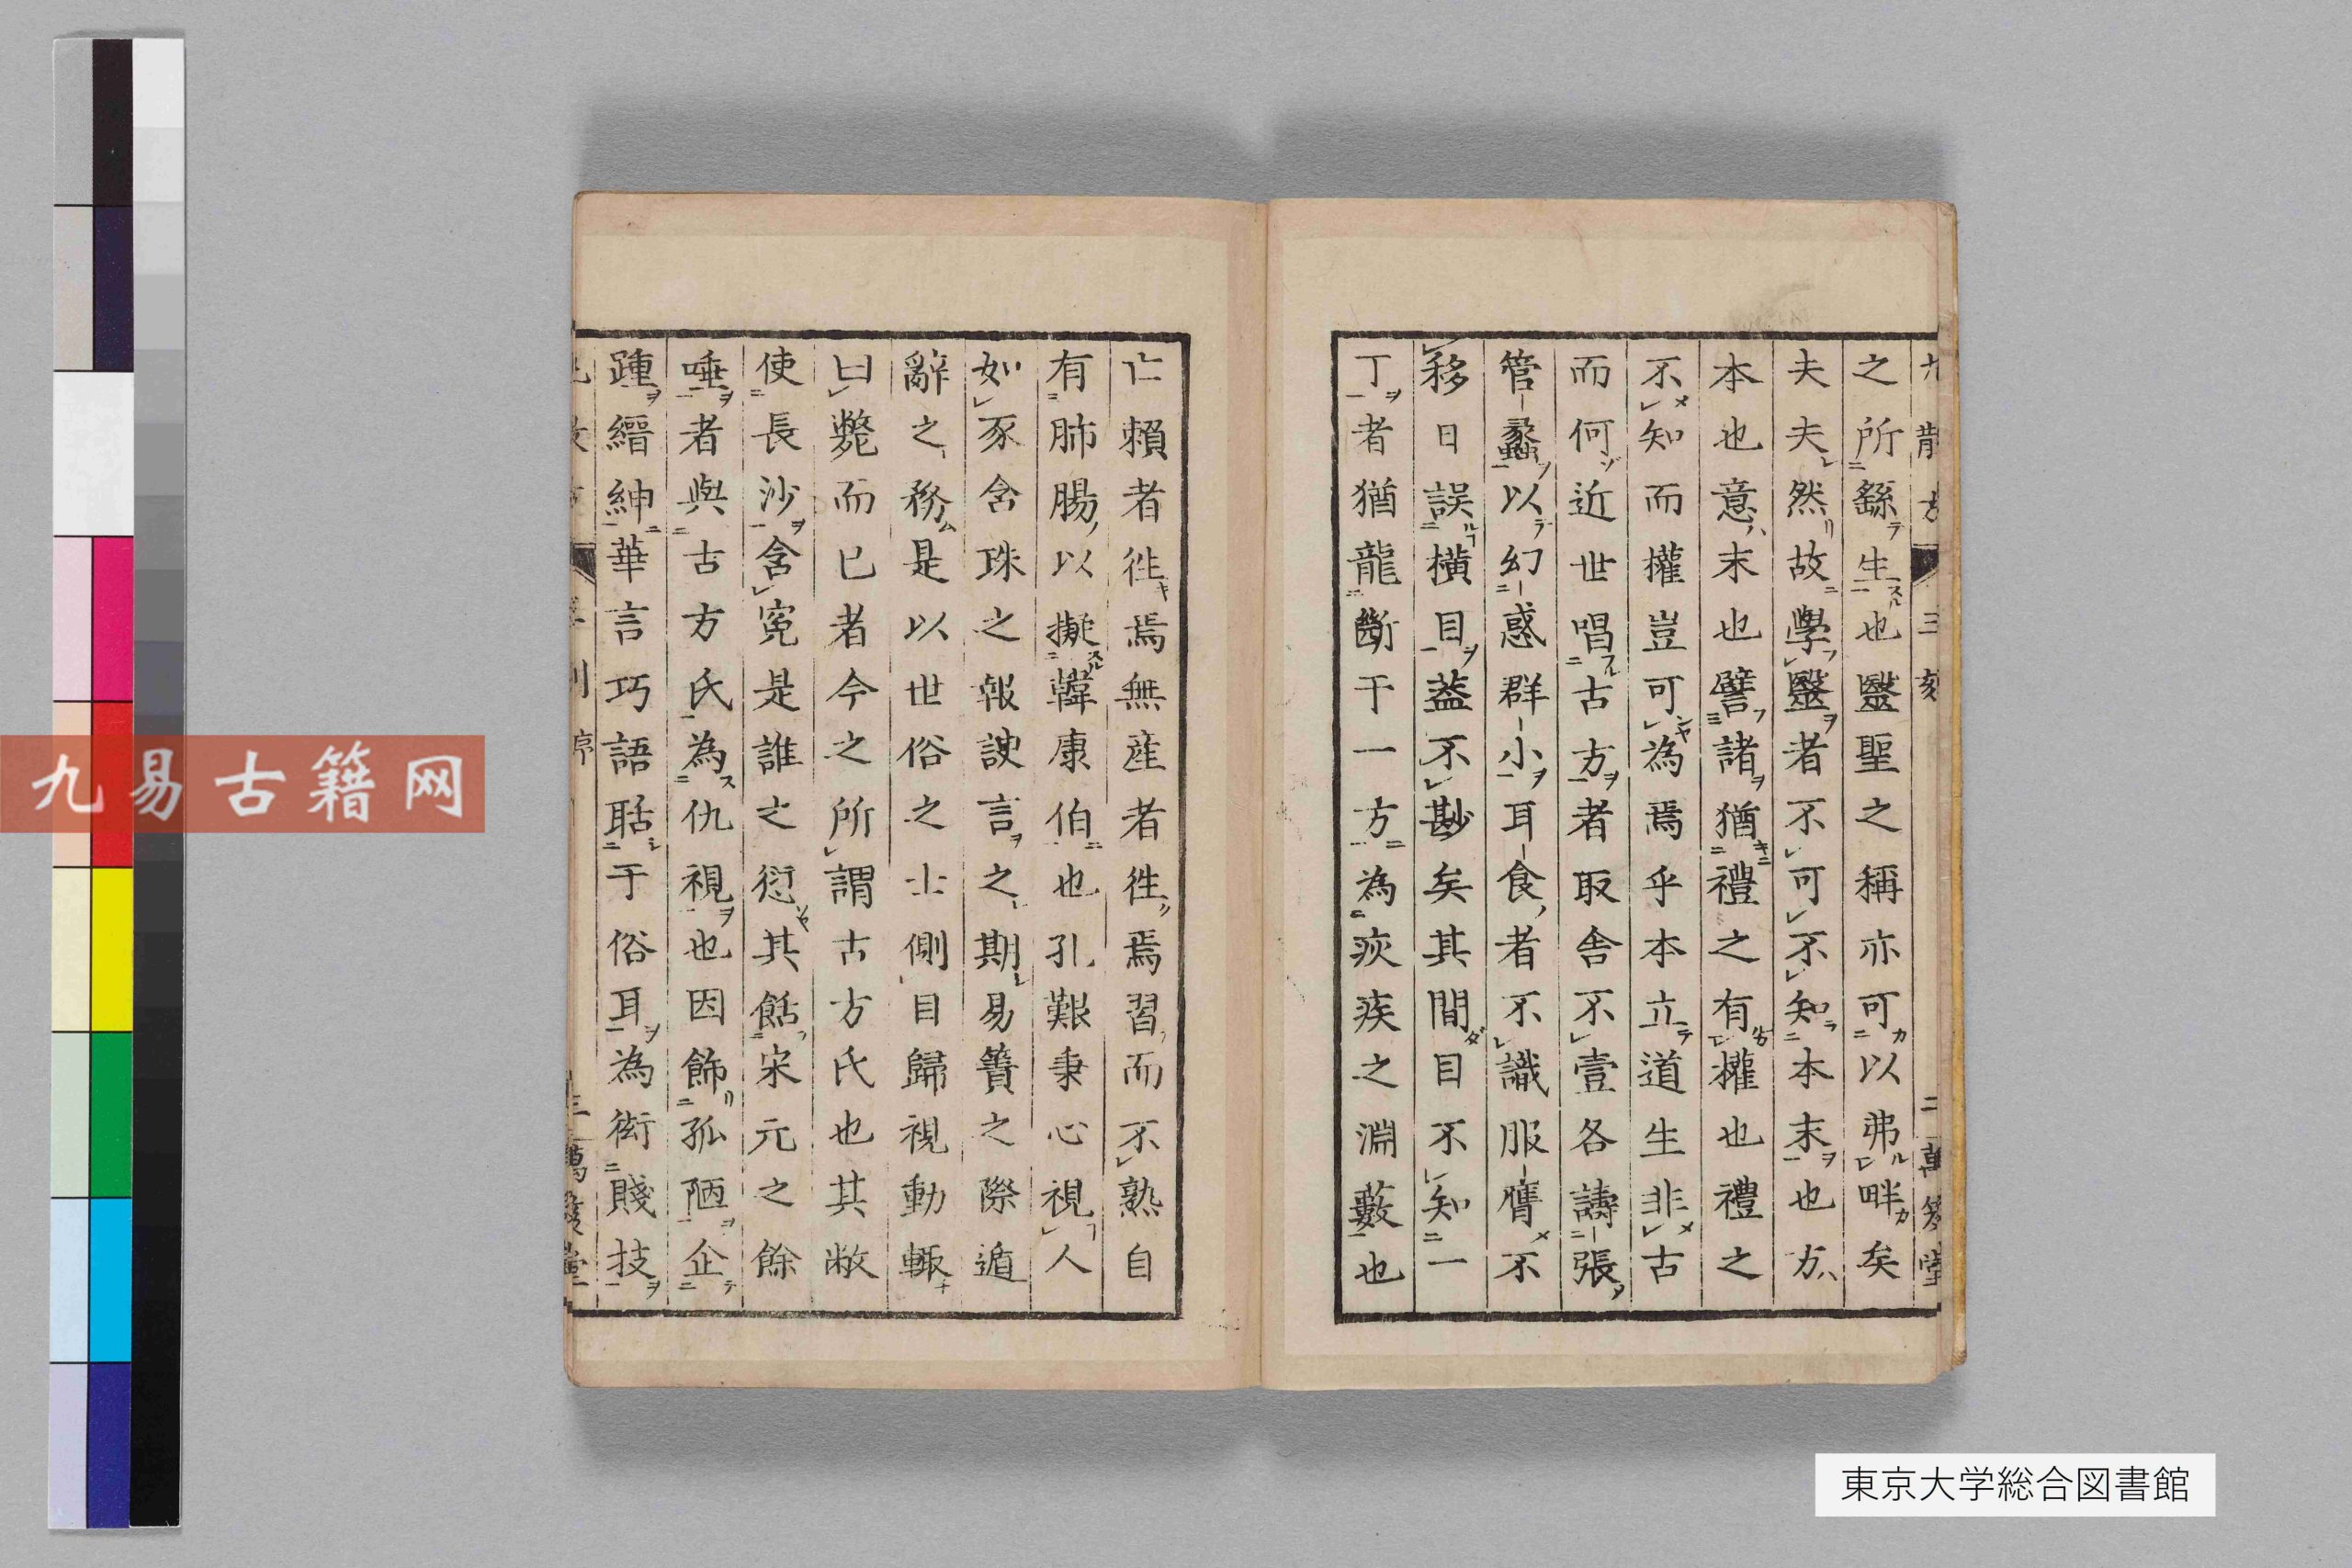 之所繇生也毉聖之稱亦可以弗畔矣
夫夫然故學毉者不可不知本末也方
本也意末也譬諸猶禮之有權也禮之
不知而權豈可為焉乎本立道生非古
而何近世唱古方者取舍不壹各譸張
管蠡以幻惑群小耳食者不識服膺不
移日誤橫目蓋不尠矣其間目不知一
丁者猶龍斷于一方為疢疾之淵藪也
亡賴者徃焉無産者徃焉習而不熟自
有肺腸以擬韓康伯也孔艱秉心視人
如豕舍珠之報諛言之期易簀之際遁
辭之務是以世俗之士側目歸視動輙
曰斃而已者今之所謂古方氏也其敝
使長沙含寃是誰之愆其餂宋元之餘
唾者與古方氏為仇視也因飾孤陋企
踵縉紳華言巧語聒于俗耳為衒賤技
二 萬笈堂
三 萬笈堂
九易古籍网
東京大学総合図書館